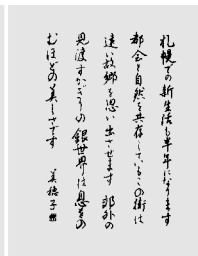 札幌での新生活も半年になります
都会と自然を共存しているこの街は
遠い故郷を思い出させます 郊外の
見渡すかぎりの銀世界は息をの
むほどの美しさです 美穂子